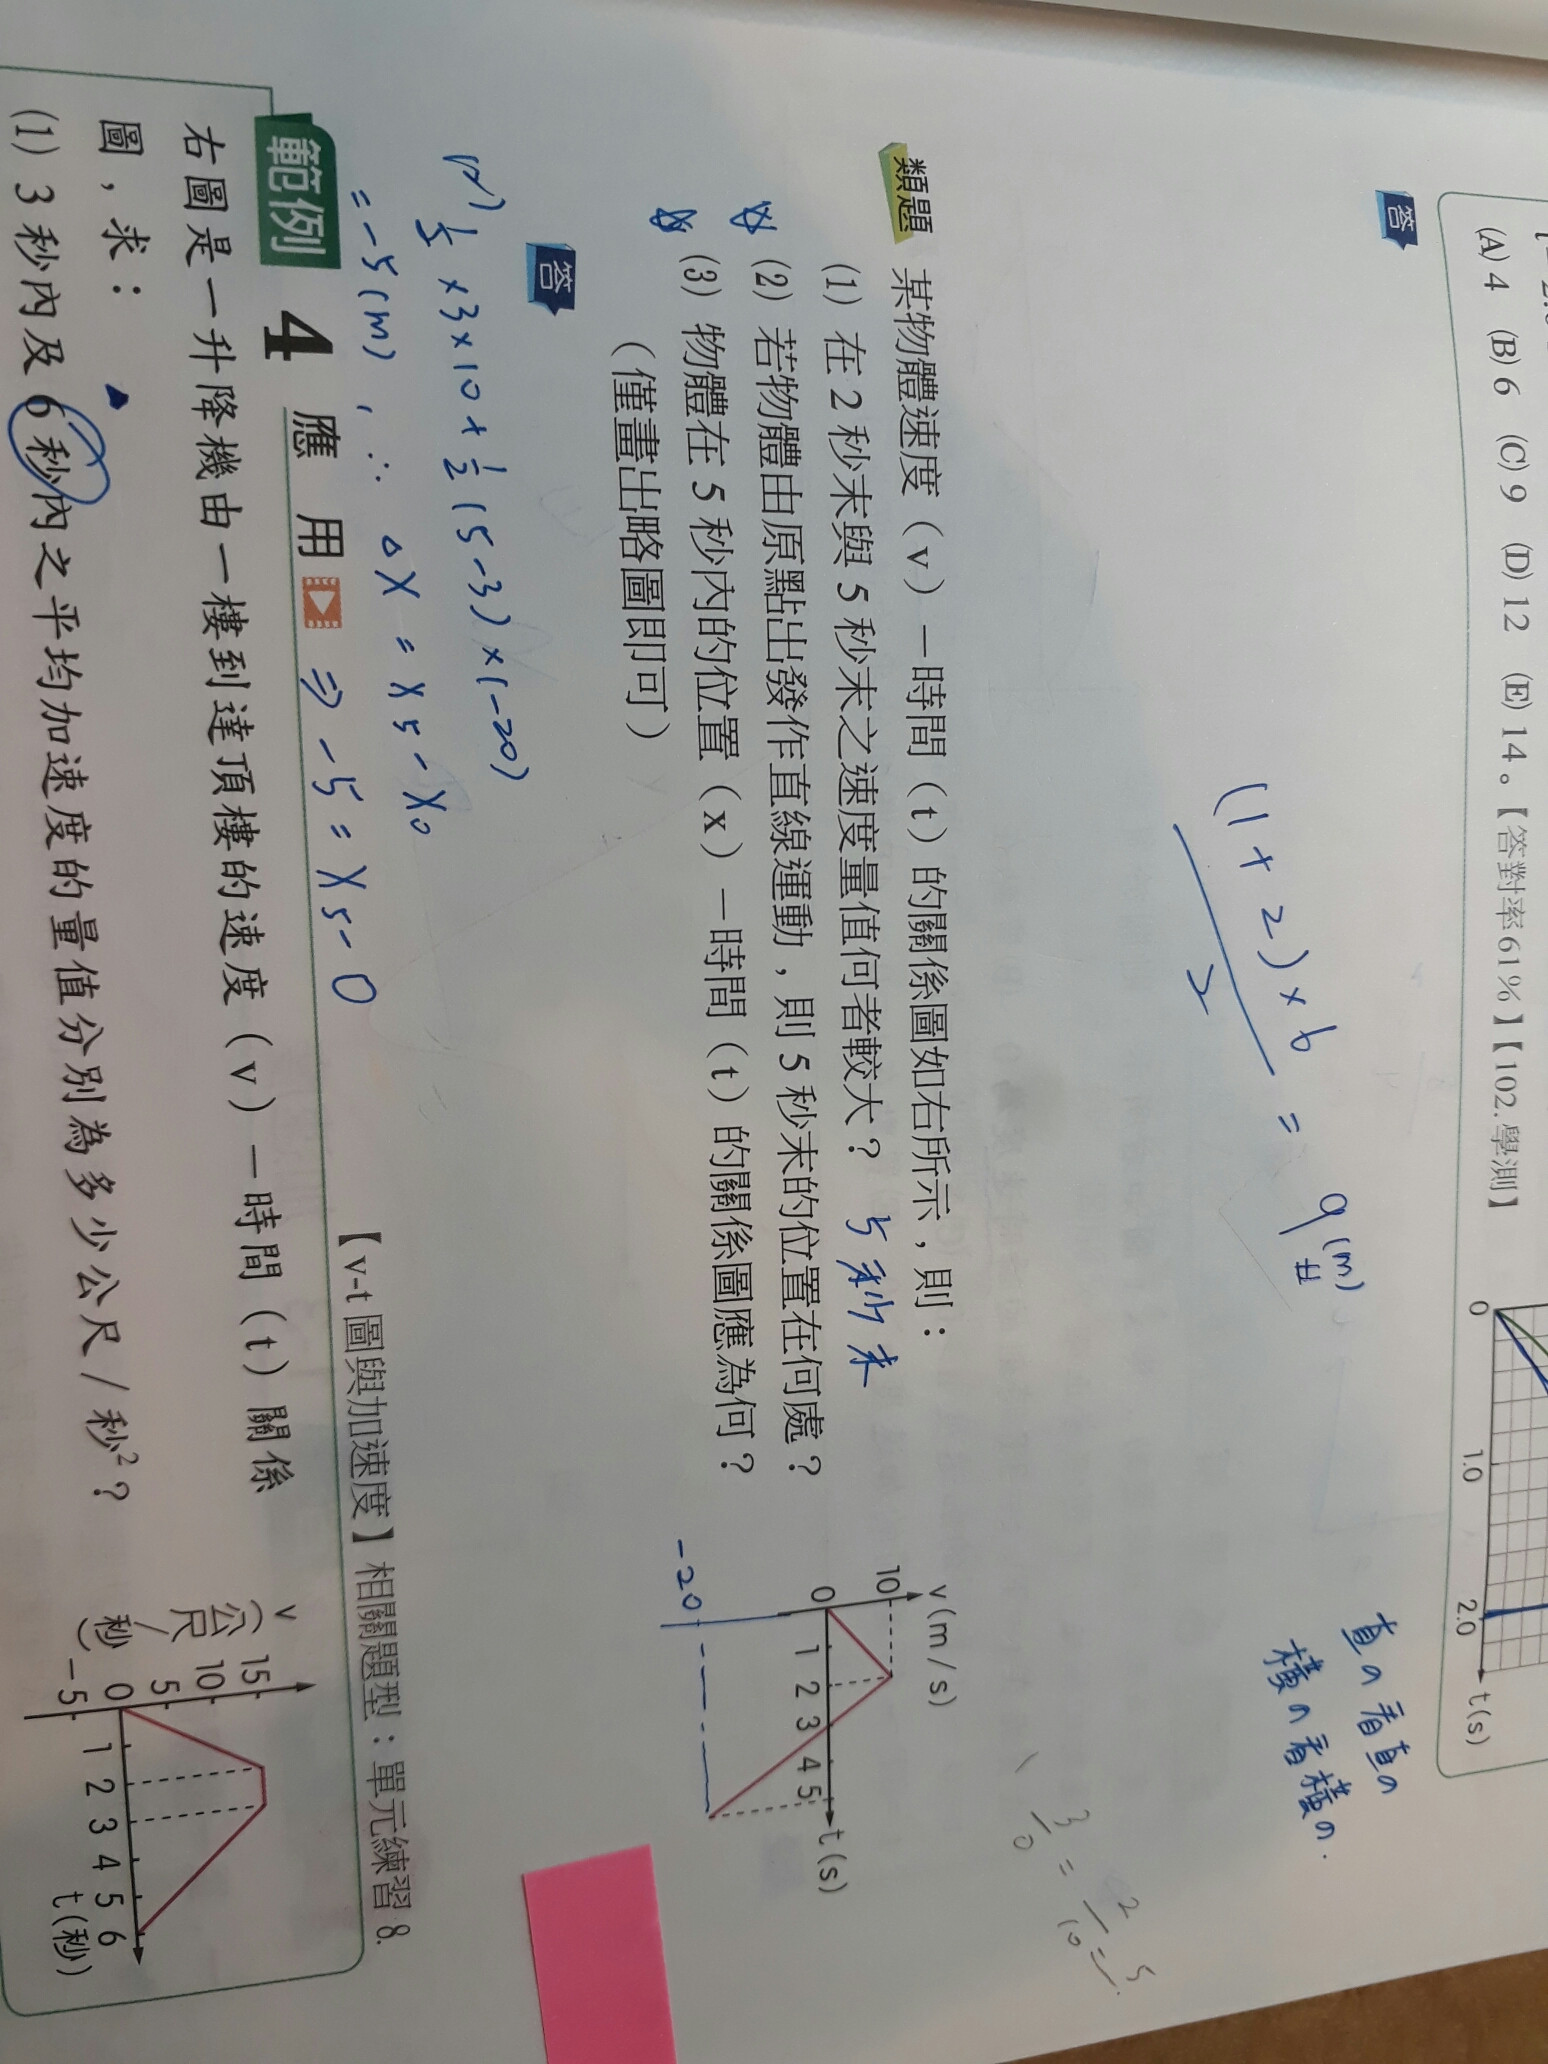 (A) 4 (B) 6 (C) 9 (D) 12 (E) 14。【答對率61%】【102.學測】
0 1.0 2.0 t(s)
答
(1+2)×6
2
= 9(m)
#
直の看直の
橫の看橫の.
類題 某物體速度（v）—時間（t）的關係圖如右所示，則：
(1) 在 2 秒末與 5 秒末之速度量值何者較大？ 5秒末
(2) 若物體由原點出發作直線運動，則 5 秒末的位置在何處？
(3) 物體在 5 秒內的位置（x）—時間（t）的關係圖應為何？
（僅畫出略圖即可）
v(m/s)
10
0 1 2 3 4 5 t(s)
-20
答
(2)
½×3×10+½(5-3)×(-20)
=-5(m), ∴ △X = X5-X0
⇒ -5 = X5-0
範例 4 應用
【v-t圖與加速度】相關題型：單元練習 8.
右圖是一升降機由一樓到達頂樓的速度（v）—時間（t）關係
圖，求：
(1) 3 秒內及 6 秒內之平均加速度的量值分別為多少公尺/秒²？
v
（公尺/秒）
15
10
5
0 1 2 3 4 5 6
-5
t(秒)